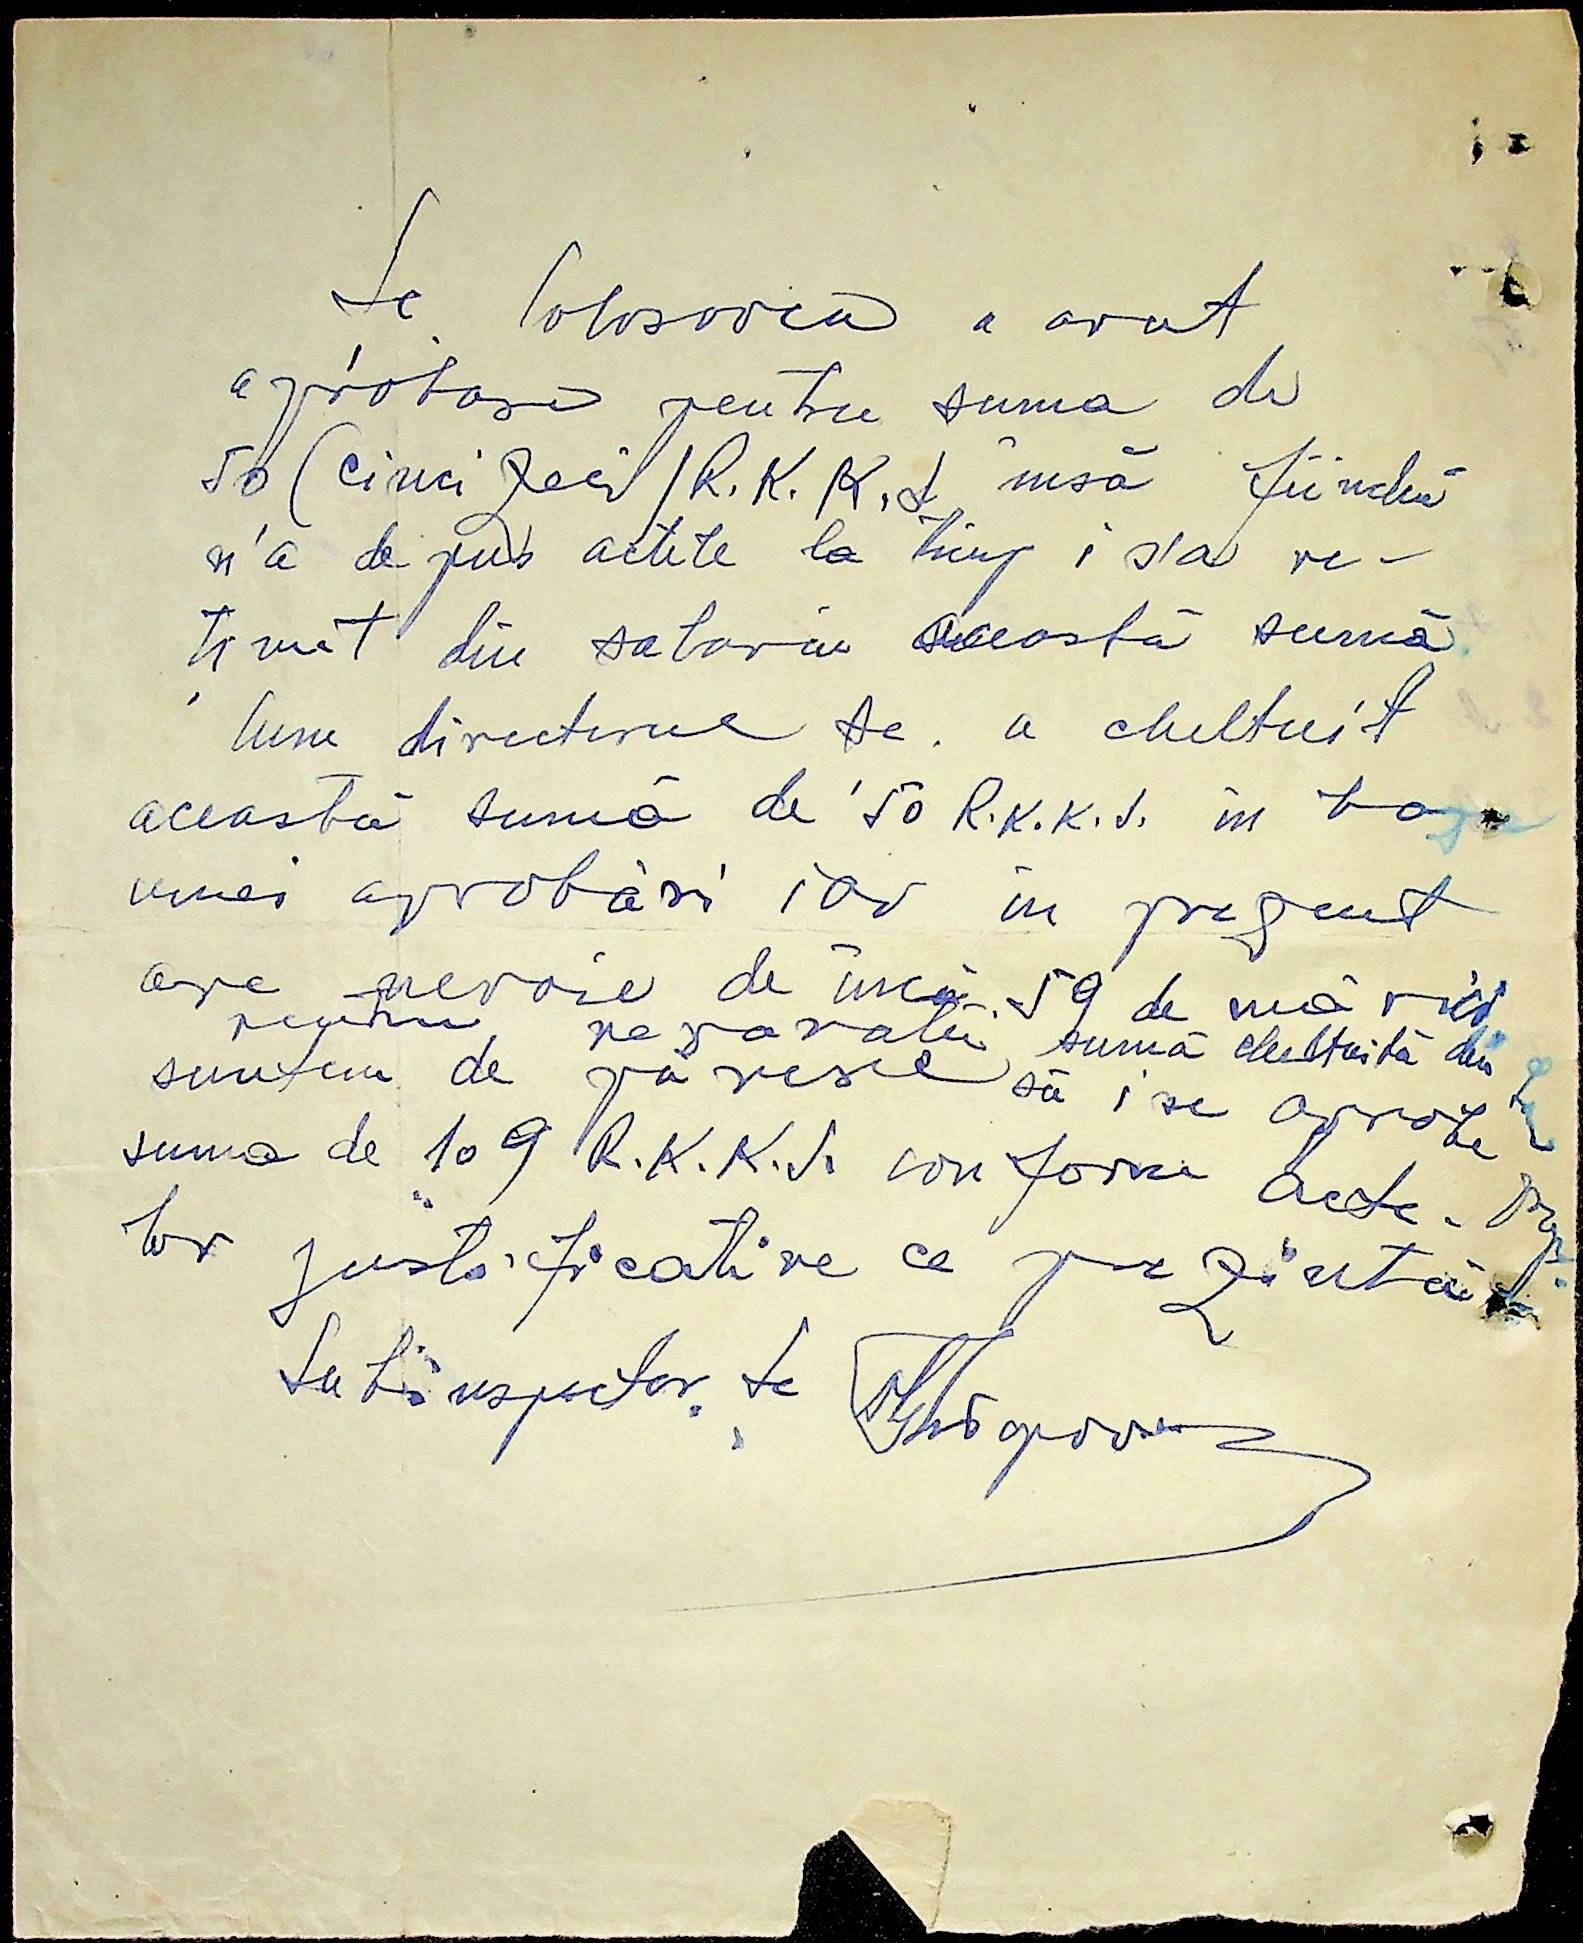 Sc. Colosovca a avut
aprobare pentru suma de
50 (cinci zeci) R.K.K.S însă fiindcă
n'a depus actele la timp i s'a re-
ținut din salariu această sumă.
Cum directorul Sc. a cheltuit
această sumă de 50 R.K.K.S. în baza
unei aprobări iar în prezent
are nevoie de încă 59 de mărci
pentru reparatii sumă cheltuită din
suntem de părere să i se aprobe
suma de 109 R.K.K.S. conform acte-
lor justificative ce prezintă
Subinspector. Sc